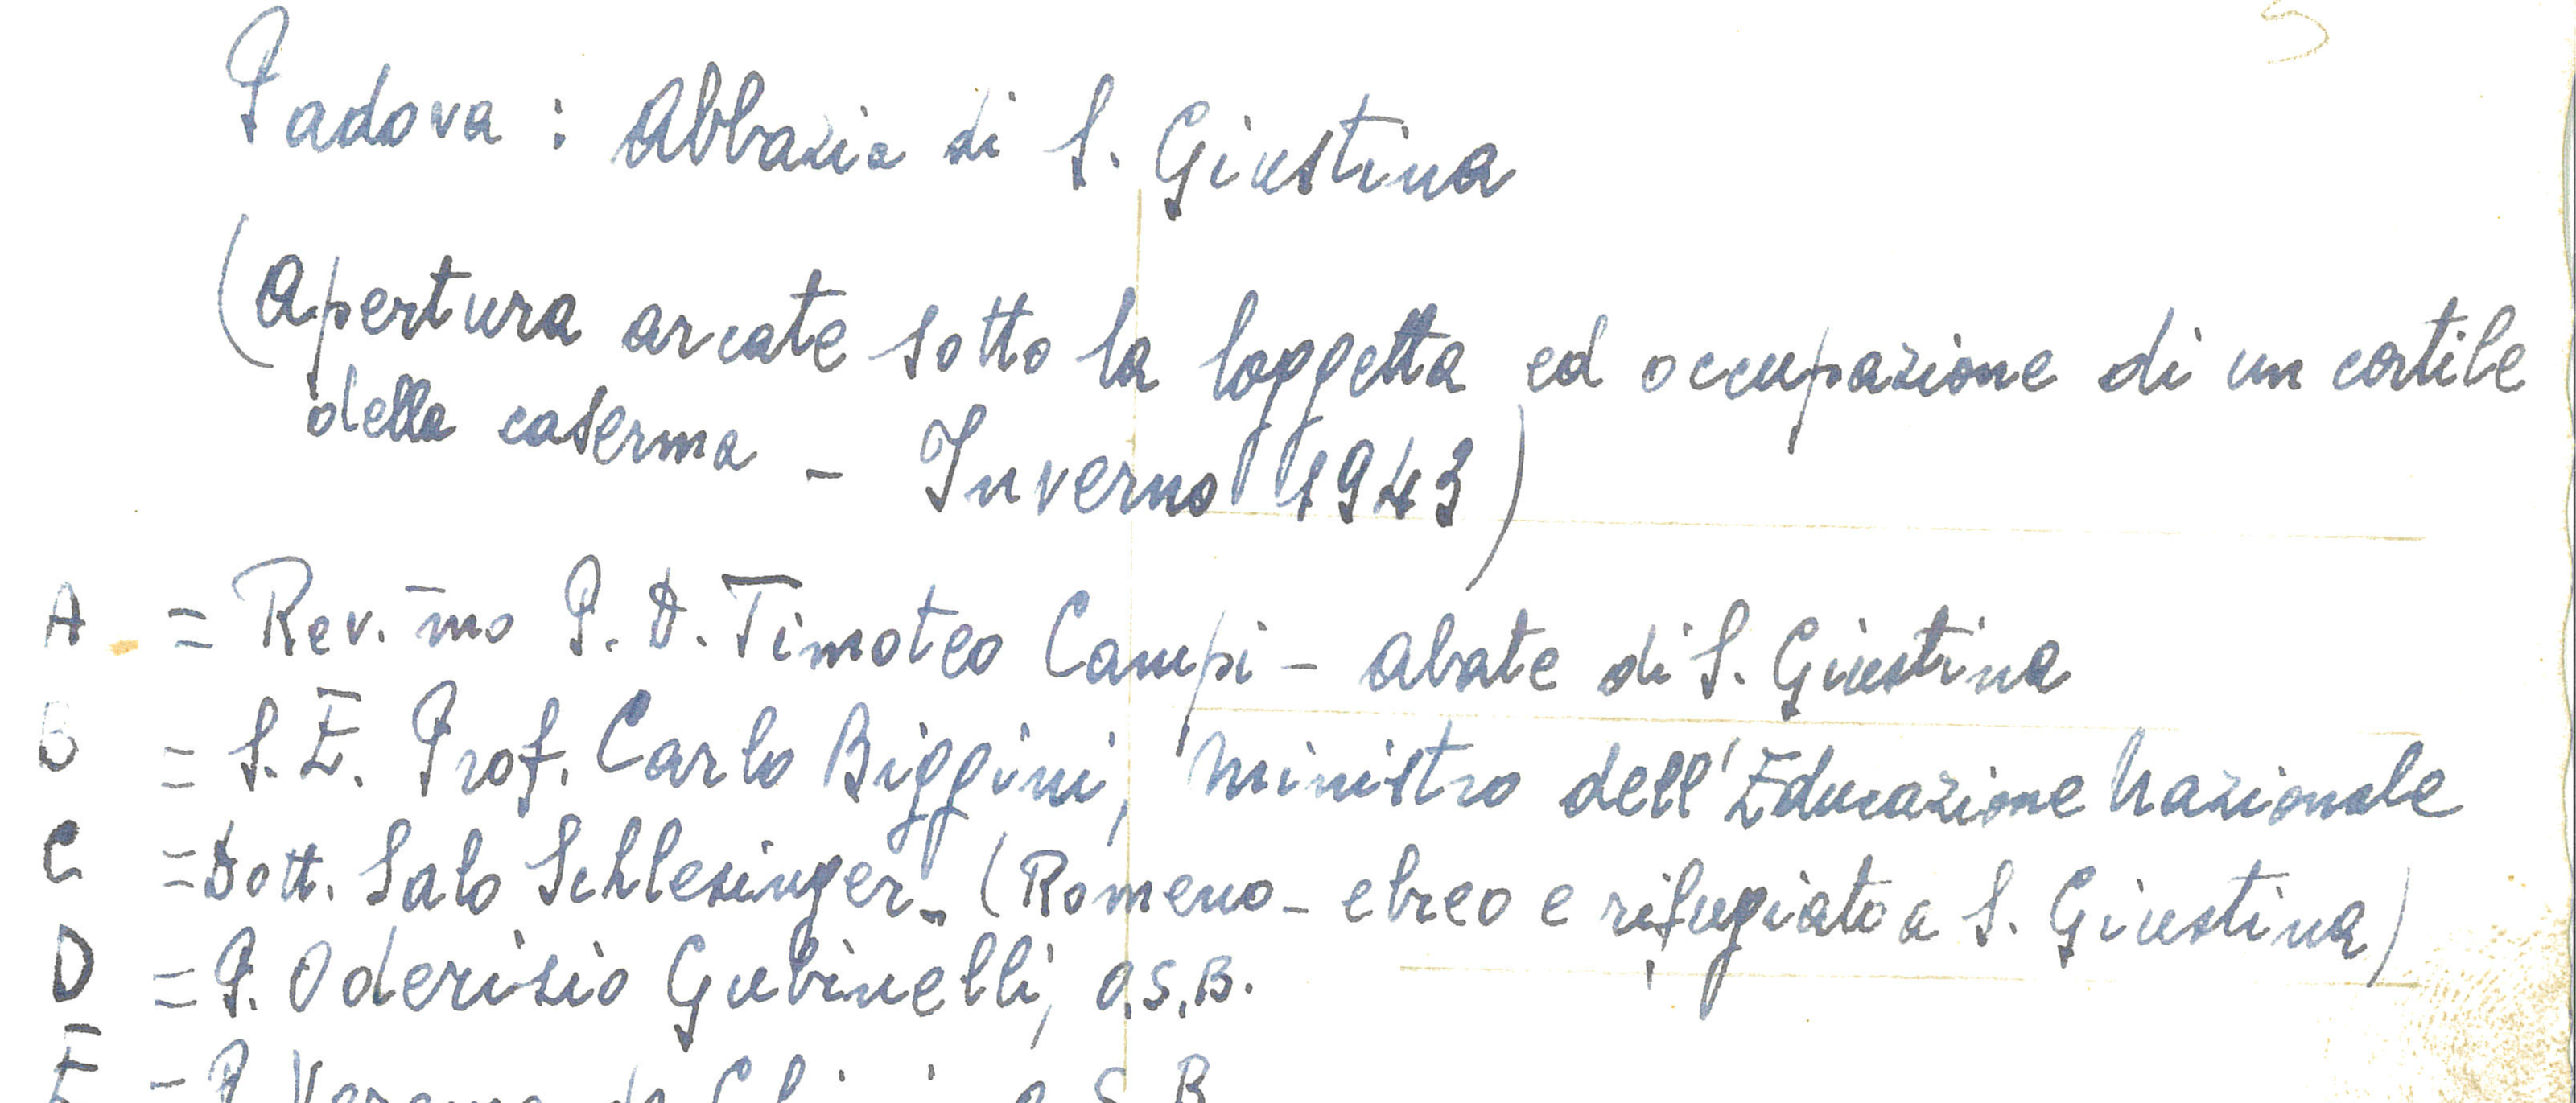 Padova : Abbazia di S. Giustina
(Apertura arcate sotto la loggetta ed occupazione di un cortile
della caserma - Inverno 1943)
A = Rev.mo P. D. Timoteo Campi - abate di S. Giustina
B = S. E. Prof. Carlo Biggini, Ministro dell'Educazione Nazionale
C = Dott. Salo Schlesinger - (Romeno - ebreo e rifugiato a S. Giustina)
D = P. Oderisio Gubinelli, O.S.B.
E = P.